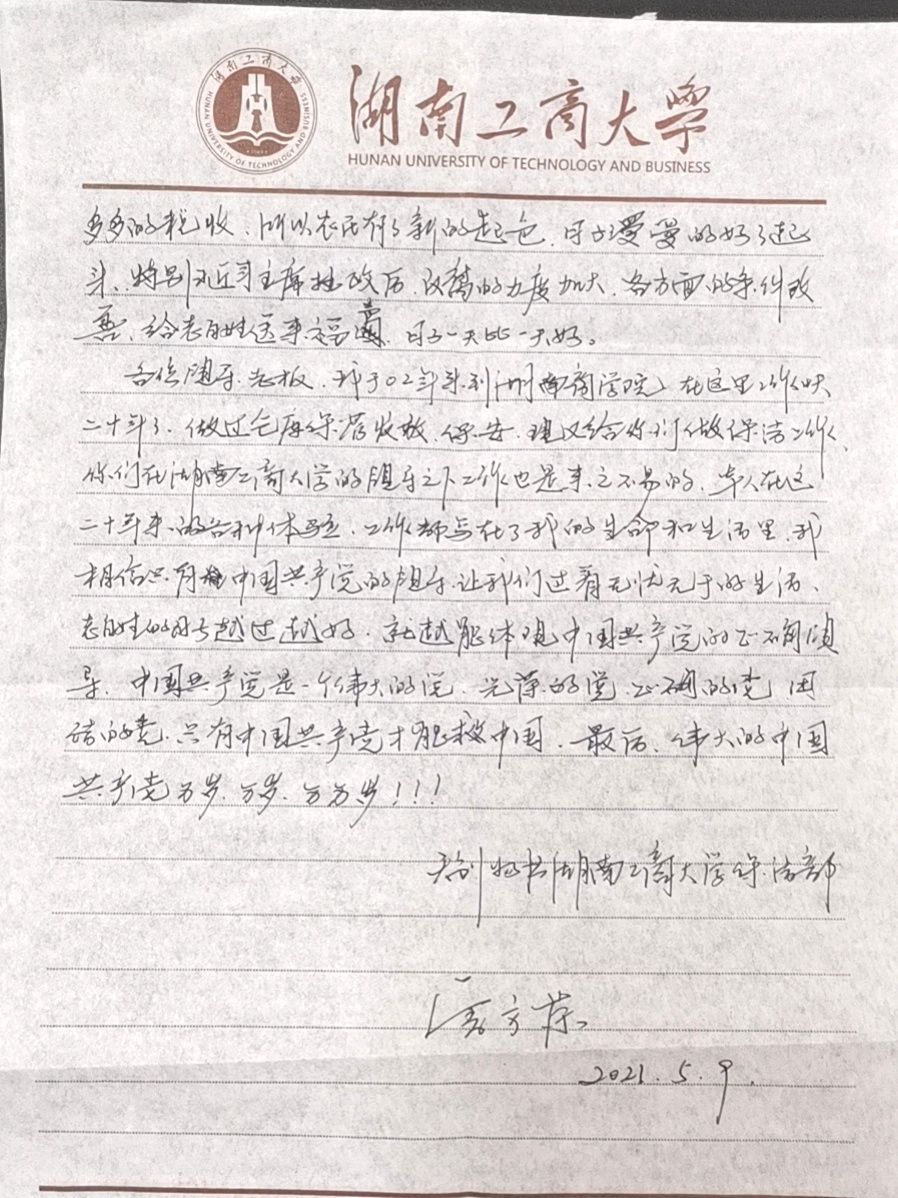 湖南工商大学
HUNAN UNIVERSITY OF TECHNOLOGY AND BUSINESS
湖南工商大学
HUNAN UNIVERSITY OF TECHNOLOGY AND BUSINESS
多多的税收、所以农民有了新的起色、日子慢慢的好了起
来、特别是习主席执政后、改革的力度加大、各方面的条件改
善、给老百姓送来福音、日子一天比一天好。
各位领导、老板、我于02年来到湖南商学院、在这里工作
二十年了、做过仓库保管收发、保安、现又给你们做保洁工作、
你们在湖南工商大学的领导之下工作也是来之不易的、本人在这
二十年来的各种体验、工作都写在了我的生命和生活里、我
相信只有中国共产党的领导、让我们过着无忧无于的生活、
老百姓的日子越过越好、就越能体现中国共产党的正确领
导、中国共产党是一个伟大的党、光荣的党、正确的党、团
结的党、只有中国共产党才能救中国、最后、伟大的中国
共产党万岁、万岁、万万岁！！！
湖南工商大学保洁部
2021.5.9.